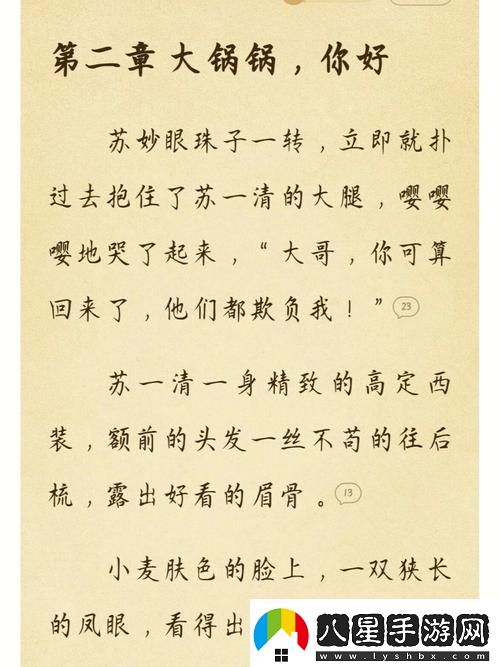 第二章 大锅锅，你好
苏妙眼珠子一转，立即就扑
过去抱住了苏一清的大腿，嘤嘤
嘤地哭了起来，“大哥，你可算
回来了，他们都欺负我！”23
苏一清一身精致的高定西
装，额前的头发一丝不苟的往后
梳，露出好看的眉骨。13
小麦肤色的脸上，一双狭长
的凤眼，看得出
八星手游网
www.lyshbx.com